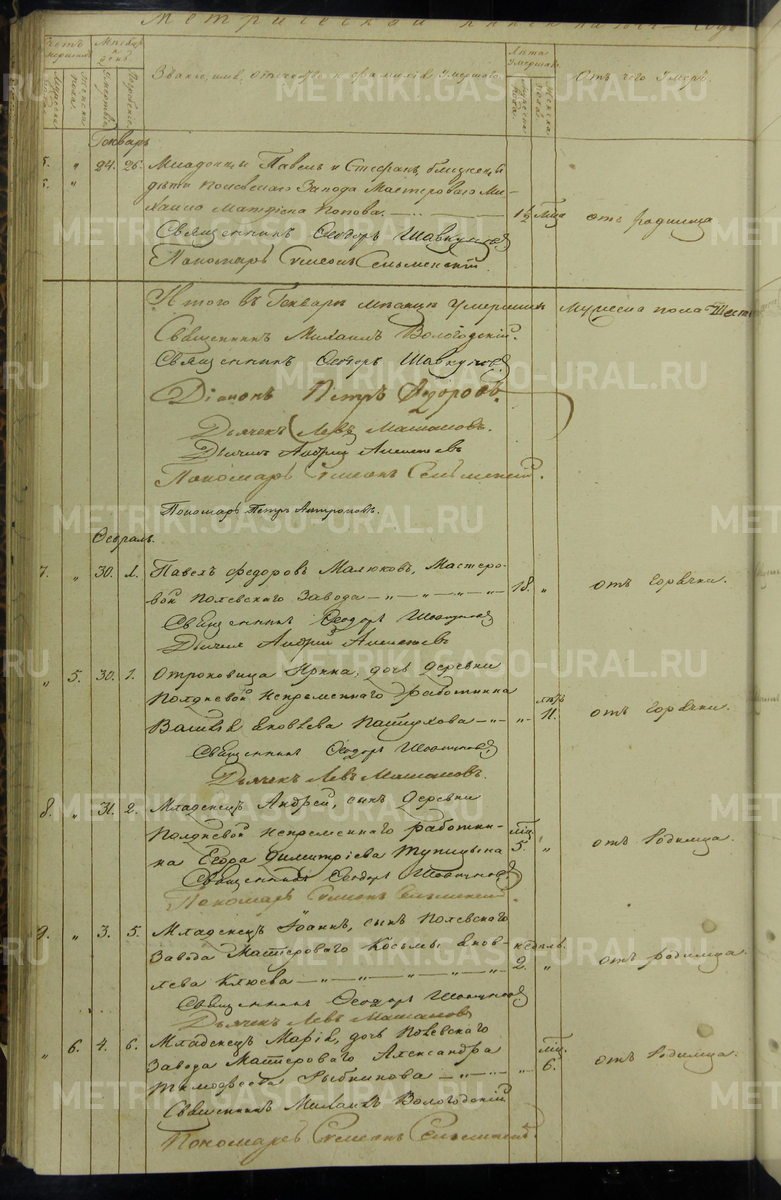 Метрической книги на 18 годъ
Счетъ умершихъ
Мужеска пола
Женска пола
Месяцъ и день
Смерти
Погребенія
Званіе, имя, отчество и фамилія умершаго.
Лѣта умершаго
Мужеска пола
Женска пола
Отъ чего умеръ.
Генварь
5. " 24. 26. Младенцы Павелъ и Стефанъ, близнецы
6. " дѣти Полевскаго Завода Мастероваго Ми-
хаила Попова. 1½ мца отъ родимца
Священникъ Ѳеодоръ
Пономарь Симеонъ Сельменскій.
Итого въ Генварѣ месяцѣ умершихъ Мужеска пола Шесть
Священникъ Михаилъ Вологодскій.
Священникъ Ѳеодоръ
Діаконъ Петръ Ѳедоровъ.
Дьячекъ Левъ Машановъ.
Дьячекъ Андрей Алексѣевъ
Пономарь Симеонъ Сельменскій.
Пономарь Петръ
Февраль.
7. " 30. 1. Павелъ Федоровъ Малюковъ, Мастеро-
вой Полевскаго Завода — " — " — " — " — 18. " отъ горячки.
Священникъ Ѳеодоръ
Дьячекъ Андрей Алексѣевъ
" 5. 30. 1. Отроковица Ирина, дочь деревни
Полдневой непременнаго работника
Яковлева Пастухова — " — " лѣтъ 11. отъ горячки.
Священникъ Ѳеодоръ
Дьячекъ Левъ Машановъ.
8. " 31. 2. Младенецъ Андрей, сынъ деревни
Полдневой непременнаго работни-
ка Егора Димитріева Тупицына мца 5. " отъ родимца.
Священникъ Ѳеодоръ
Пономарь Симеонъ Сельменскій.
9. " 3. 5. Младенецъ Іоаннъ, сынъ Полевскаго
Завода Мастероваго Косьмы Яков-
лева Клюева — " — " — " — " — недѣль. 2. " отъ родимца.
Священникъ Ѳеодоръ
Дьячекъ Левъ Машановъ
" 6. 4. 6. Младенецъ Марія, дочь Полевскаго
Завода Мастероваго Александра
Тимофеева Рыбникова — " — " — " мца. 6. отъ родимца.
Священникъ Михаилъ Вологодскій
Пономарь Симеонъ Сельменскій.
METRIKI.GASO-URAL.RU